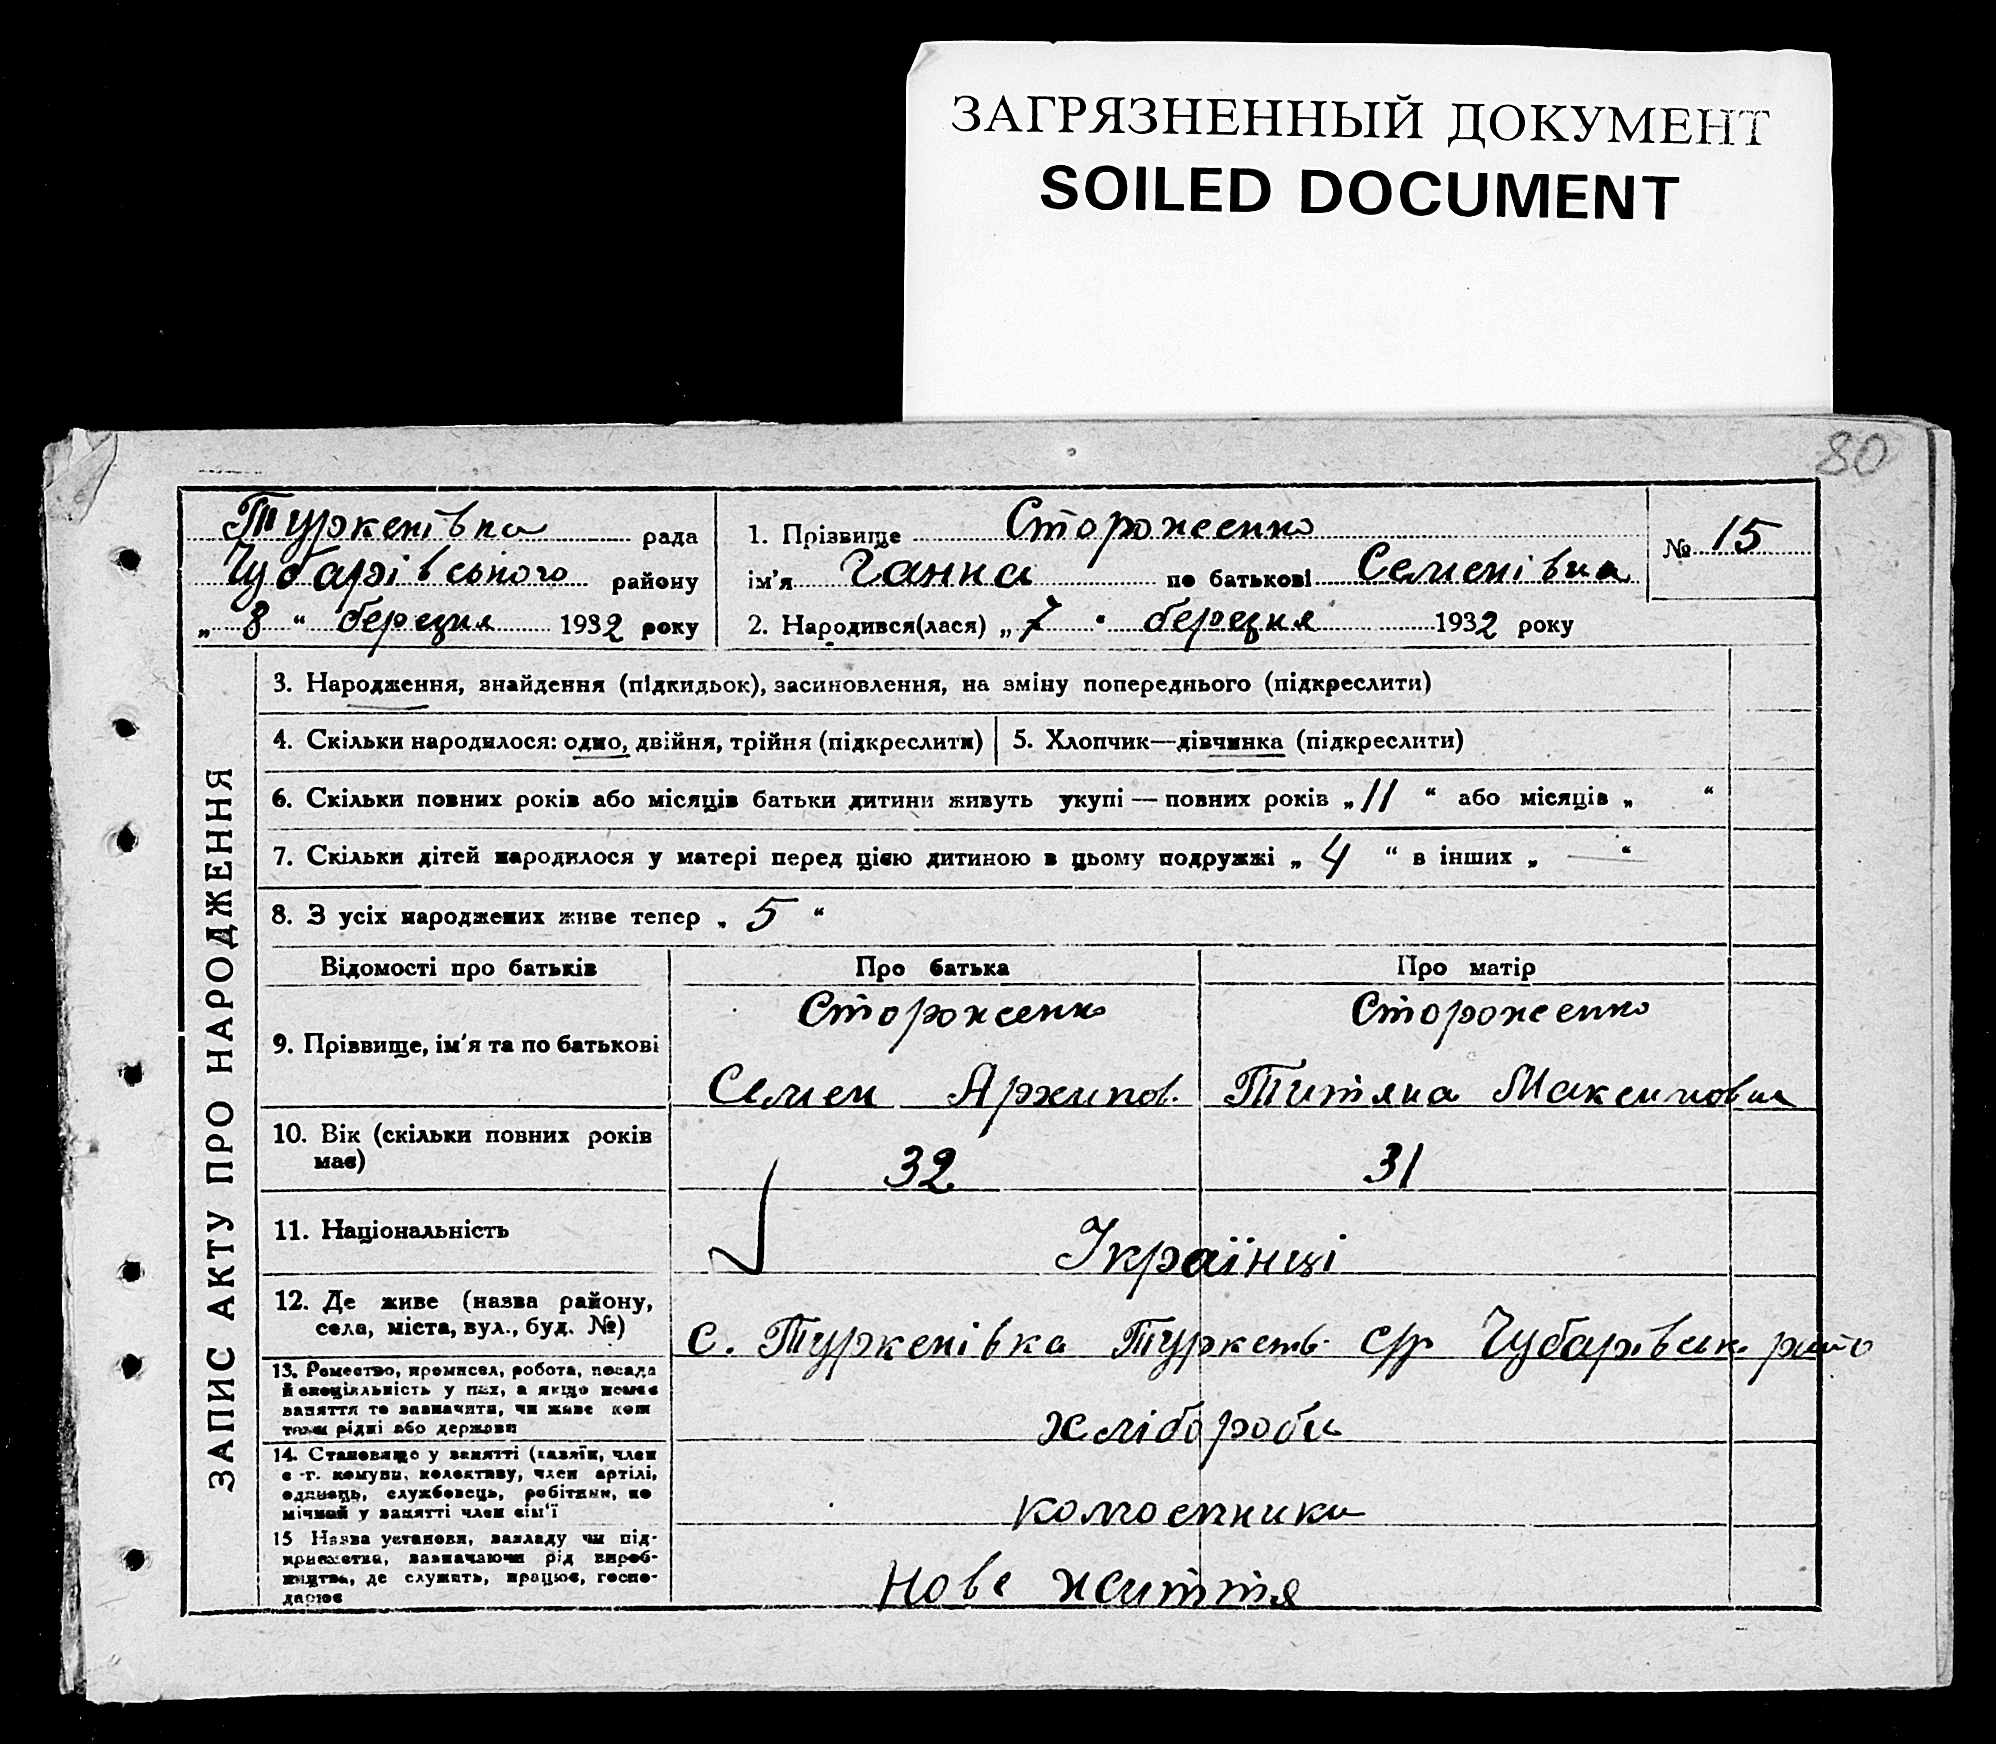 ЗАГРЯЗНЕННЫЙ ДОКУМЕНТ
SOILED DOCUMENT
80
Туркенівка рада
Чубарівського району
„ 8 “ березня 1932 року
1. Прізвище Стороженко
ім'я Ганна по батькові Семенівна
№ 15
2. Народився(лася) „ 7 “ березня 1932 року
ЗАПИС АКТУ ПРО НАРОДЖЕННЯ
3. Народження, знайдення (підкидьок), засиновлення, на зміну попереднього (підкреслити)
4. Скільки народилося: одно, двійня, трійня (підкреслити)
5. Хлопчик—дівчинка (підкреслити)
6. Скільки повних років або місяців батьки дитини живуть укупі — повних років „ 11 “ або місяців „ “
7. Скільки дітей народилося у матері перед цією дитиною в цьому подружжі „ 4 “ в інших „ — “
8. З усіх народжених живе тепер „ 5 “
Відомості про батьків
Про батька
Про матір
9. Прізвище, ім'я та по батькові
Стороженко
Семен Архипов.
Стороженко
Титяна Максимовна
10. Вік (скільки повних років
має)
32
31
11. Національність
Українці
12. Де живе (назва району,
села, міста, вул., буд. №)
с. Туркенівка Туркенів. с/р Чубарівськ. рай-о
13. Ремество, промисел, робота, посада
й спеціяльність у них, а якщо немає
заняття то зазначити, чи живе кош
тами рідні або держави
хлібороби
14. Становище у занятті (хазяїн, член
с.-г. комуни, колективу, член артілі,
одинець, службовець, робітник, по
мічний у занятті член сім'ї
колгоспники
15 Назва установи, закладу чи під-
приємства, зазначаючи рід вироб-
ництва, де служить, працює, госпо-
дарює
Нове життя